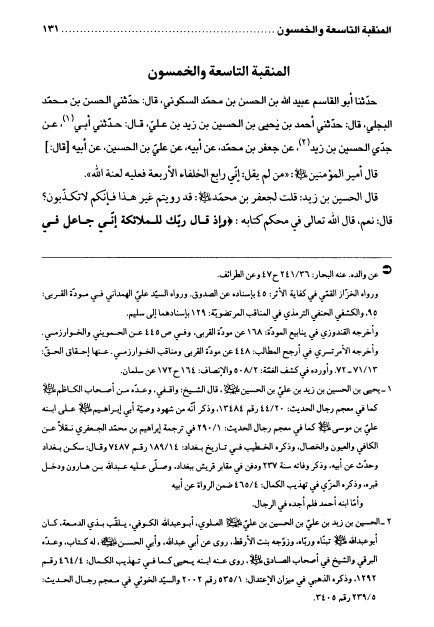 المنقبة التاسعة والخمسون ........................................................ ١٣١
المنقبة التاسعة والخمسون
حدّثنا أبو القاسم عبيد الله بن الحسن بن محمّد السكوني، قال: حدّثني الحسن بن محمّد
البجلي، قال: حدّثني أحمد بن يحيى بن الحسين بن زيد بن عليّ، قال: حدّثني أبي(١)، عن
جدّي الحسين بن زيد(٢)، عن جعفر بن محمّد، عن أبيه، عن عليّ بن الحسين، عن أبيه [قال:]
قال أمير المؤمنين ﷺ: «من لم يقل: إنّي رابع الخلفاء الأربعة فعليه لعنة الله».
قال الحسين بن زيد: قلت لجعفر بن محمّد ﷺ: قد رويتم غير هذا فإنّكم لاتكذّبون؟
قال: نعم، قال الله تعالى في محكم كتابه: ﴿وإذ قال ربّك للملائكة إنّي جاعل في
عن والده. عنه البحار: ٢٤١/٣٦ ح٤٧ وعن الطرائف.
ورواه الخزّاز القمّي في كفاية الأثر: ٤٥ بإسناده عن الصدوق. ورواه السيّد عليّ الهمداني في مودّة القربى:
٩٥، والكشفي الحنفي الترمذي في المناقب المرتضويّة: ١٢٩ بإسنادهما إلى سليم.
وأخرجه القندوزي في ينابيع المودّة: ١٦٨ عن مودّة القربى، وفي ص٤٤٥ عن الحمويني والخوارزمي.
وأخرجه الأمرتسري في أرجح المطالب: ٤٤٨ عن مودّة القربى ومناقب الخوارزمي. عنها إحقاق الحقّ:
٧١/١٣ ـ ٧٢. وأورده في كشف الغمّة: ٥٠٨/٢ والإنصاف: ١٦٤ ح١٧٢ عن سلمان.
١ ـ يحيى بن الحسين بن زيد بن عليّ بن الحسين ﷺ، قال الشيخ: واقفي، وعدّه من أصحاب الكاظم ﷺ
كما في معجم رجال الحديث: ٤٤/٢٠ رقم ١٣٤٨٤، وذكر أنّه من شهود وصيّة أبي إبراهيم ﷺ على ابنه
عليّ بن موسى ﷺ كما في معجم رجال الحديث: ٢٩٠/١ في ترجمة إبراهيم بن محمّد الجعفري نقلاً عن
الكافي والعيون والخصال، وذكره الخطيب في تاريخ بغداد: ١٨٩/١٤ رقم ٧٤٨٧ وقال: سكن بغداد
وحدّث عن أبيه، وذكر وفاته سنة ٢٣٧ ودفن في مقابر قريش ببغداد، وصلّى عليه عبدالله بن هارون ودخل
قبره، وذكره المزّي في تهذيب الكمال: ٤٦٥/٤ ضمن الرواة عن أبيه
وأمّا ابنه أحمد فلم أجده في الرجال.
٢ ـ الحسين بن زيد بن عليّ بن الحسين بن عليّ ﷺ العلوي، أبوعبدالله الكوفي، يلقّب بذي الدمعة، كان
أبوعبدالله ﷺ تبنّاه وربّاه. وزوّجه بنت الأرقط، روى عن أبي عبدالله، وأبي الحسن ﷺ، له كتاب، وعدّه
البرقي والشيخ في أصحاب الصادق ﷺ، روى عنه ابنه يحيى كما في تهذيب الكمال: ٤٦٤/٤ رقم
١٢٩٢. وذكره الذهبي في ميزان الإعتدال: ٥٣٥/١ رقم ٢٠٠٢ والسيّد الخوئي في معجم رجال الحديث:
٢٣٩/٥ رقم ٣٤٠٥.